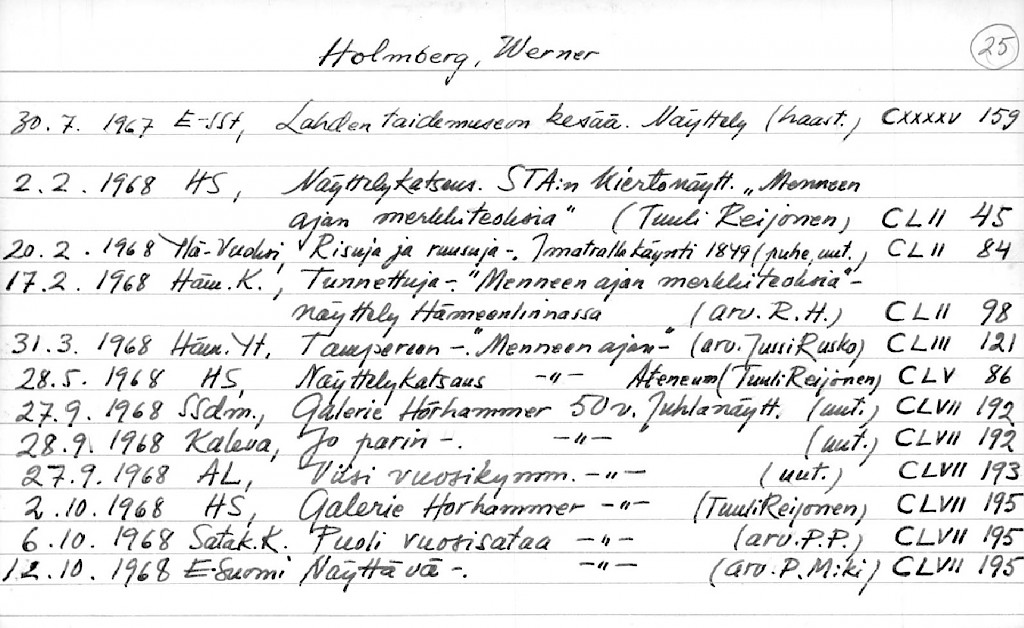 Holmberg, Werner 25
30.7. 1967 E-SSt, Lahden taidemuseon kesää. Näyttely (haast.) CXXXXV 159
2.2. 1968 HS, Näyttelykatsaus. STA:n Kiertonäytt. „Menneen
ajan merkkiteoksia" (Tuuli Reijonen) CLII 45
20.2. 1968 Ylä-Vuoksi, Risuja ja ruusuja-. Imatralla käynti 1849 (puhe, uut.) CLII 84
17.2. 1968 Häm.K., Tunnettuja-. "Menneen ajan merkkiteoksia"-
näyttely Hämeenlinnassa (arv. R.H.) CLII 98
31.3. 1968 Häm.Yt, Tampereen -. "Menneen ajan-" (arv. Jussi Rusko) CLIII 121
28.5. 1968 HS, Näyttelykatsaus -"- Ateneum (Tuuli Reijonen) CLV 86
27.9. 1968 SSdm., Galerie Hörhammer 50v. Juhlanäytt. (uut.) CLVII 192
28.9. 1968 Kaleva, Jo parin -. -"- (uut.) CLVII 192
27.9. 1968 AL, Viisi vuosikymm. -"- (uut.) CLVII 193
2.10.1968 HS, Galerie Hörhammer -"- (Tuuli Reijonen) CLVII 195
6.10. 1968 Satak.K. Puoli vuosisataa -"- (arv. P.P.) CLVII 195
12.10. 1968 E-Suomi Näyttävä -. -"- (arv. P. Miki) CLVII 195